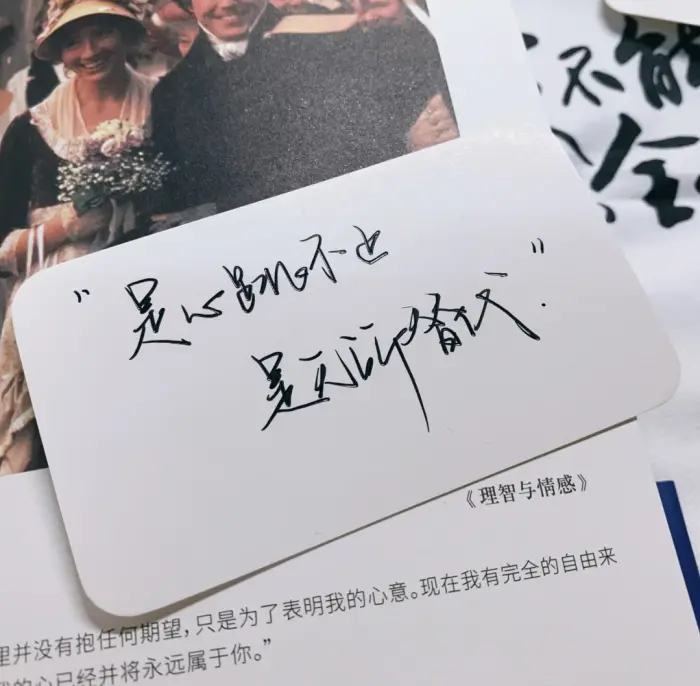 不能
“是心跳不止
是无可替代”.
《理智与情感》
里并没有抱任何期望，只是为了表明我的心意。现在我有完全的自由来
的心已经并将永远属于你。”